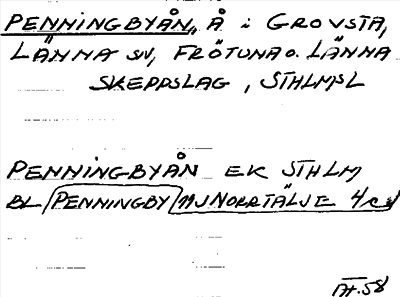 PENNINGBYÅN, Å i GROVSTA,
LÄNNA SN, FRÖTUNA O. LÄNNA
SKEPPSLAG, STHLMSL
PENNINGBYÅN EK STHLM
BL PENNINGBY 11J NORRTÄLJE 4c